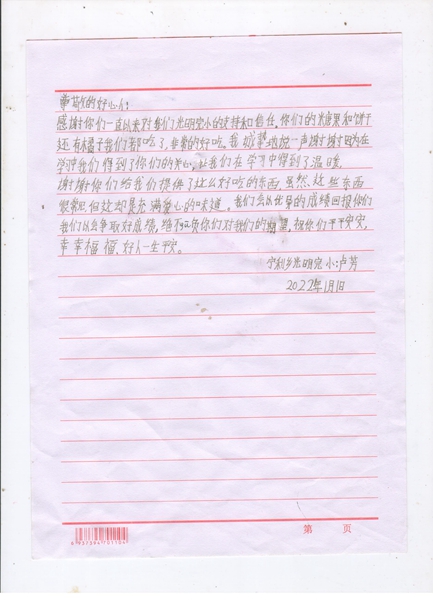 尊敬的好心人：
感谢你们一直以来对我们光明完小的支持和信任。你们的米糖果和饼干
还有橘子我们都吃了，非常的好吃。我诚挚地说一声谢谢因为在
学校我们得到了你们的关心，让我们在学习中得到了温暖
谢谢你们给我们提供了这么好吃的东西，虽然这些东西
很常见但这却是充满爱心的味道。我们会以优异的成绩回报你们
我们以会争取好成绩，绝不辜负你们对我们的期望，祝你们平平安安，
幸幸福福，好人一生平安。
宁利乡光明完小：卢芳
2022年1月1日
第 页
6 937394 701104